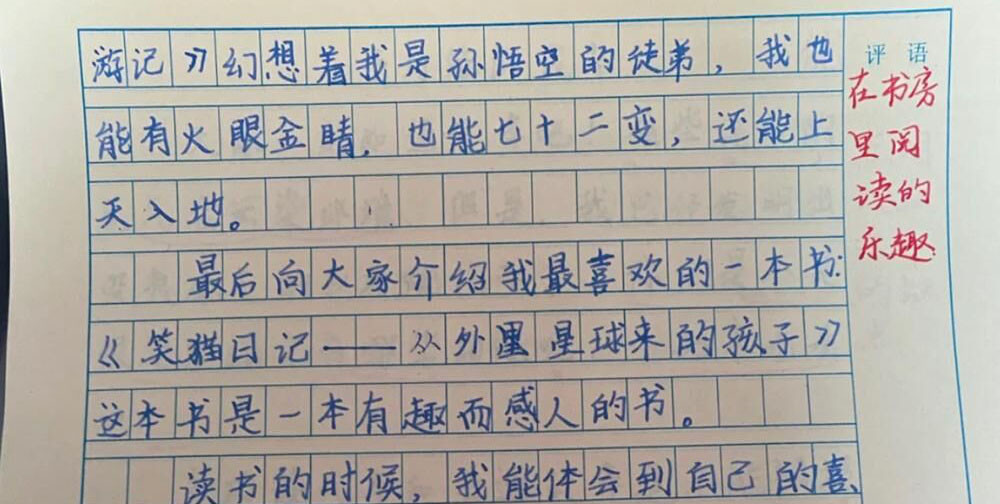 游记》幻想着我是孙悟空的徒弟，我也
能有火眼金睛，也能七十二变，还能上
天入地。
最后向大家介绍我最喜欢的一本书:
《笑猫日记——从外里星球来的孩子》
这本书是一本有趣而感人的书。
读书的时候，我能体会到自己的喜
评语
在书房
里阅
读的
乐趣